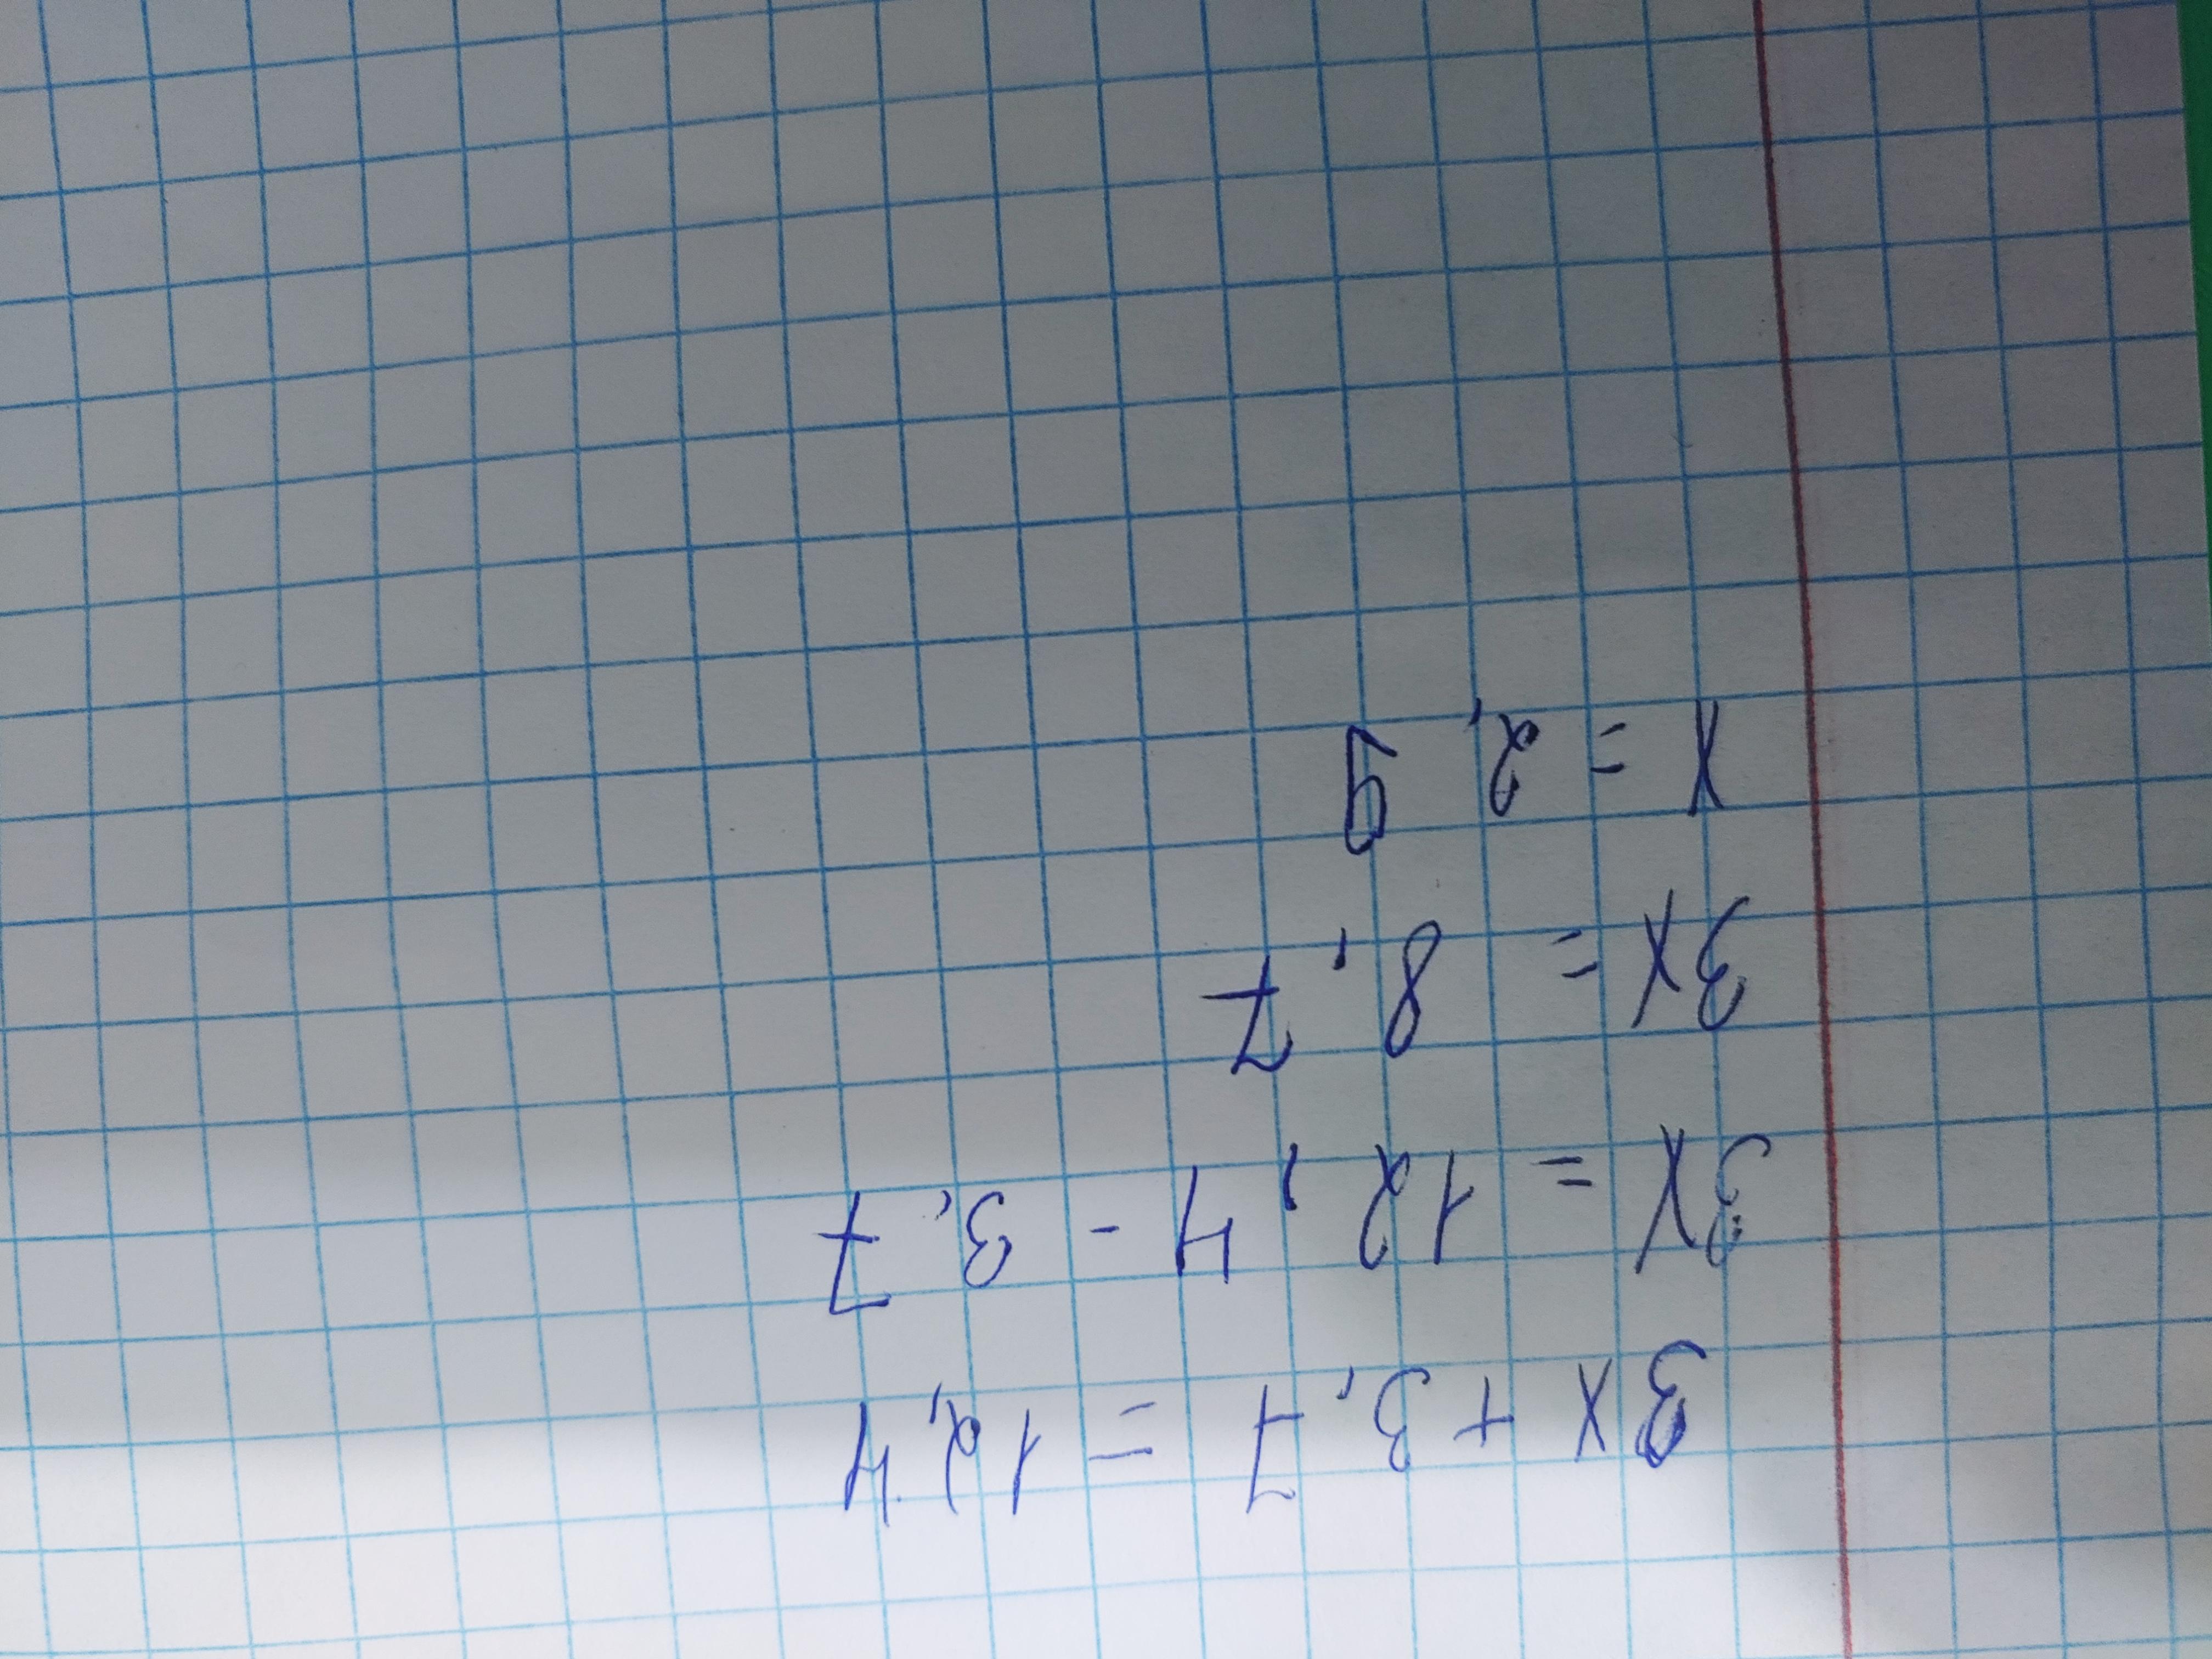 3x + 3,7 = 12,4
3x = 12,4 - 3,7
3x = 8,7
x = 2,9